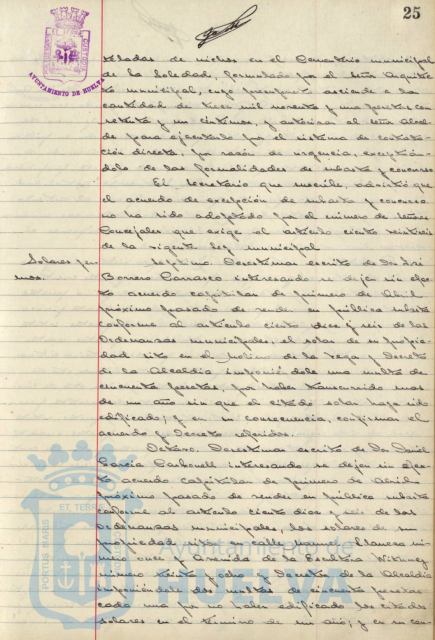 25
AYUNTAMIENTO DE HUELVA
teladas de nichos en el Cementerio municipal
de la Soledad, formulado por el Señor Arquitec
to municipal, cuyo presupuesto asciende a la
cantidad de trece mil noventa y una pesetas con
treinta y un céntimos, y autorizar al señor Alcal
de para ejecutarlo por el sistema de contrata
ción directa, por razón de urgencia, exceptuán
dolo de las formalidades de subasta y concurso
El Secretario que suscribe, advirtió que
el acuerdo de excepción de subasta y concurso
no ha sido adoptado por el número de Señores
Concejales que exige el artículo ciento veintiseis
de la vigente ley municipal
Solares yer
mos.
Séptimo. Desestimar escrito de
Borrero Carrasco interesando se dejen sin efec
to acuerdo capitular de primero de Abril
próximo pasado de vender en pública subasta
conforme al artículo ciento diez y seis de las
Ordenanzas municipales, el solar de su propie
dad sito en el Molino de la Vega y Decreto
de la Alcaldía imponiéndole una multa de
cincuenta pesetas, por haber transcurrido mas
de un año sin que el citado solar haya sido
edificado; y en su consecuencia, confirmar el
acuerdo y Decreto referidos.
Octavo. Desestimar escrito de
García Carbonell interesando se dejen sin efec
to acuerdo capitular de primero de Abril
próximo pasado de vender en pública subasta
conforme al artículo ciento diez y seis de las
Ordenanzas municipales, los solares de su
propiedad sitos en calle Blanca nú
mero once y Avenida de la Escultora Withney
número treinta y ocho y Decretos de la Alcaldía
imponiéndole dos multas de cincuenta pesetas
cada una por no haber edificado los citados
solares en el término de un año; y en su con
PORTUS MARIS ET TERRAE
Ayuntamiento de
HUELVA